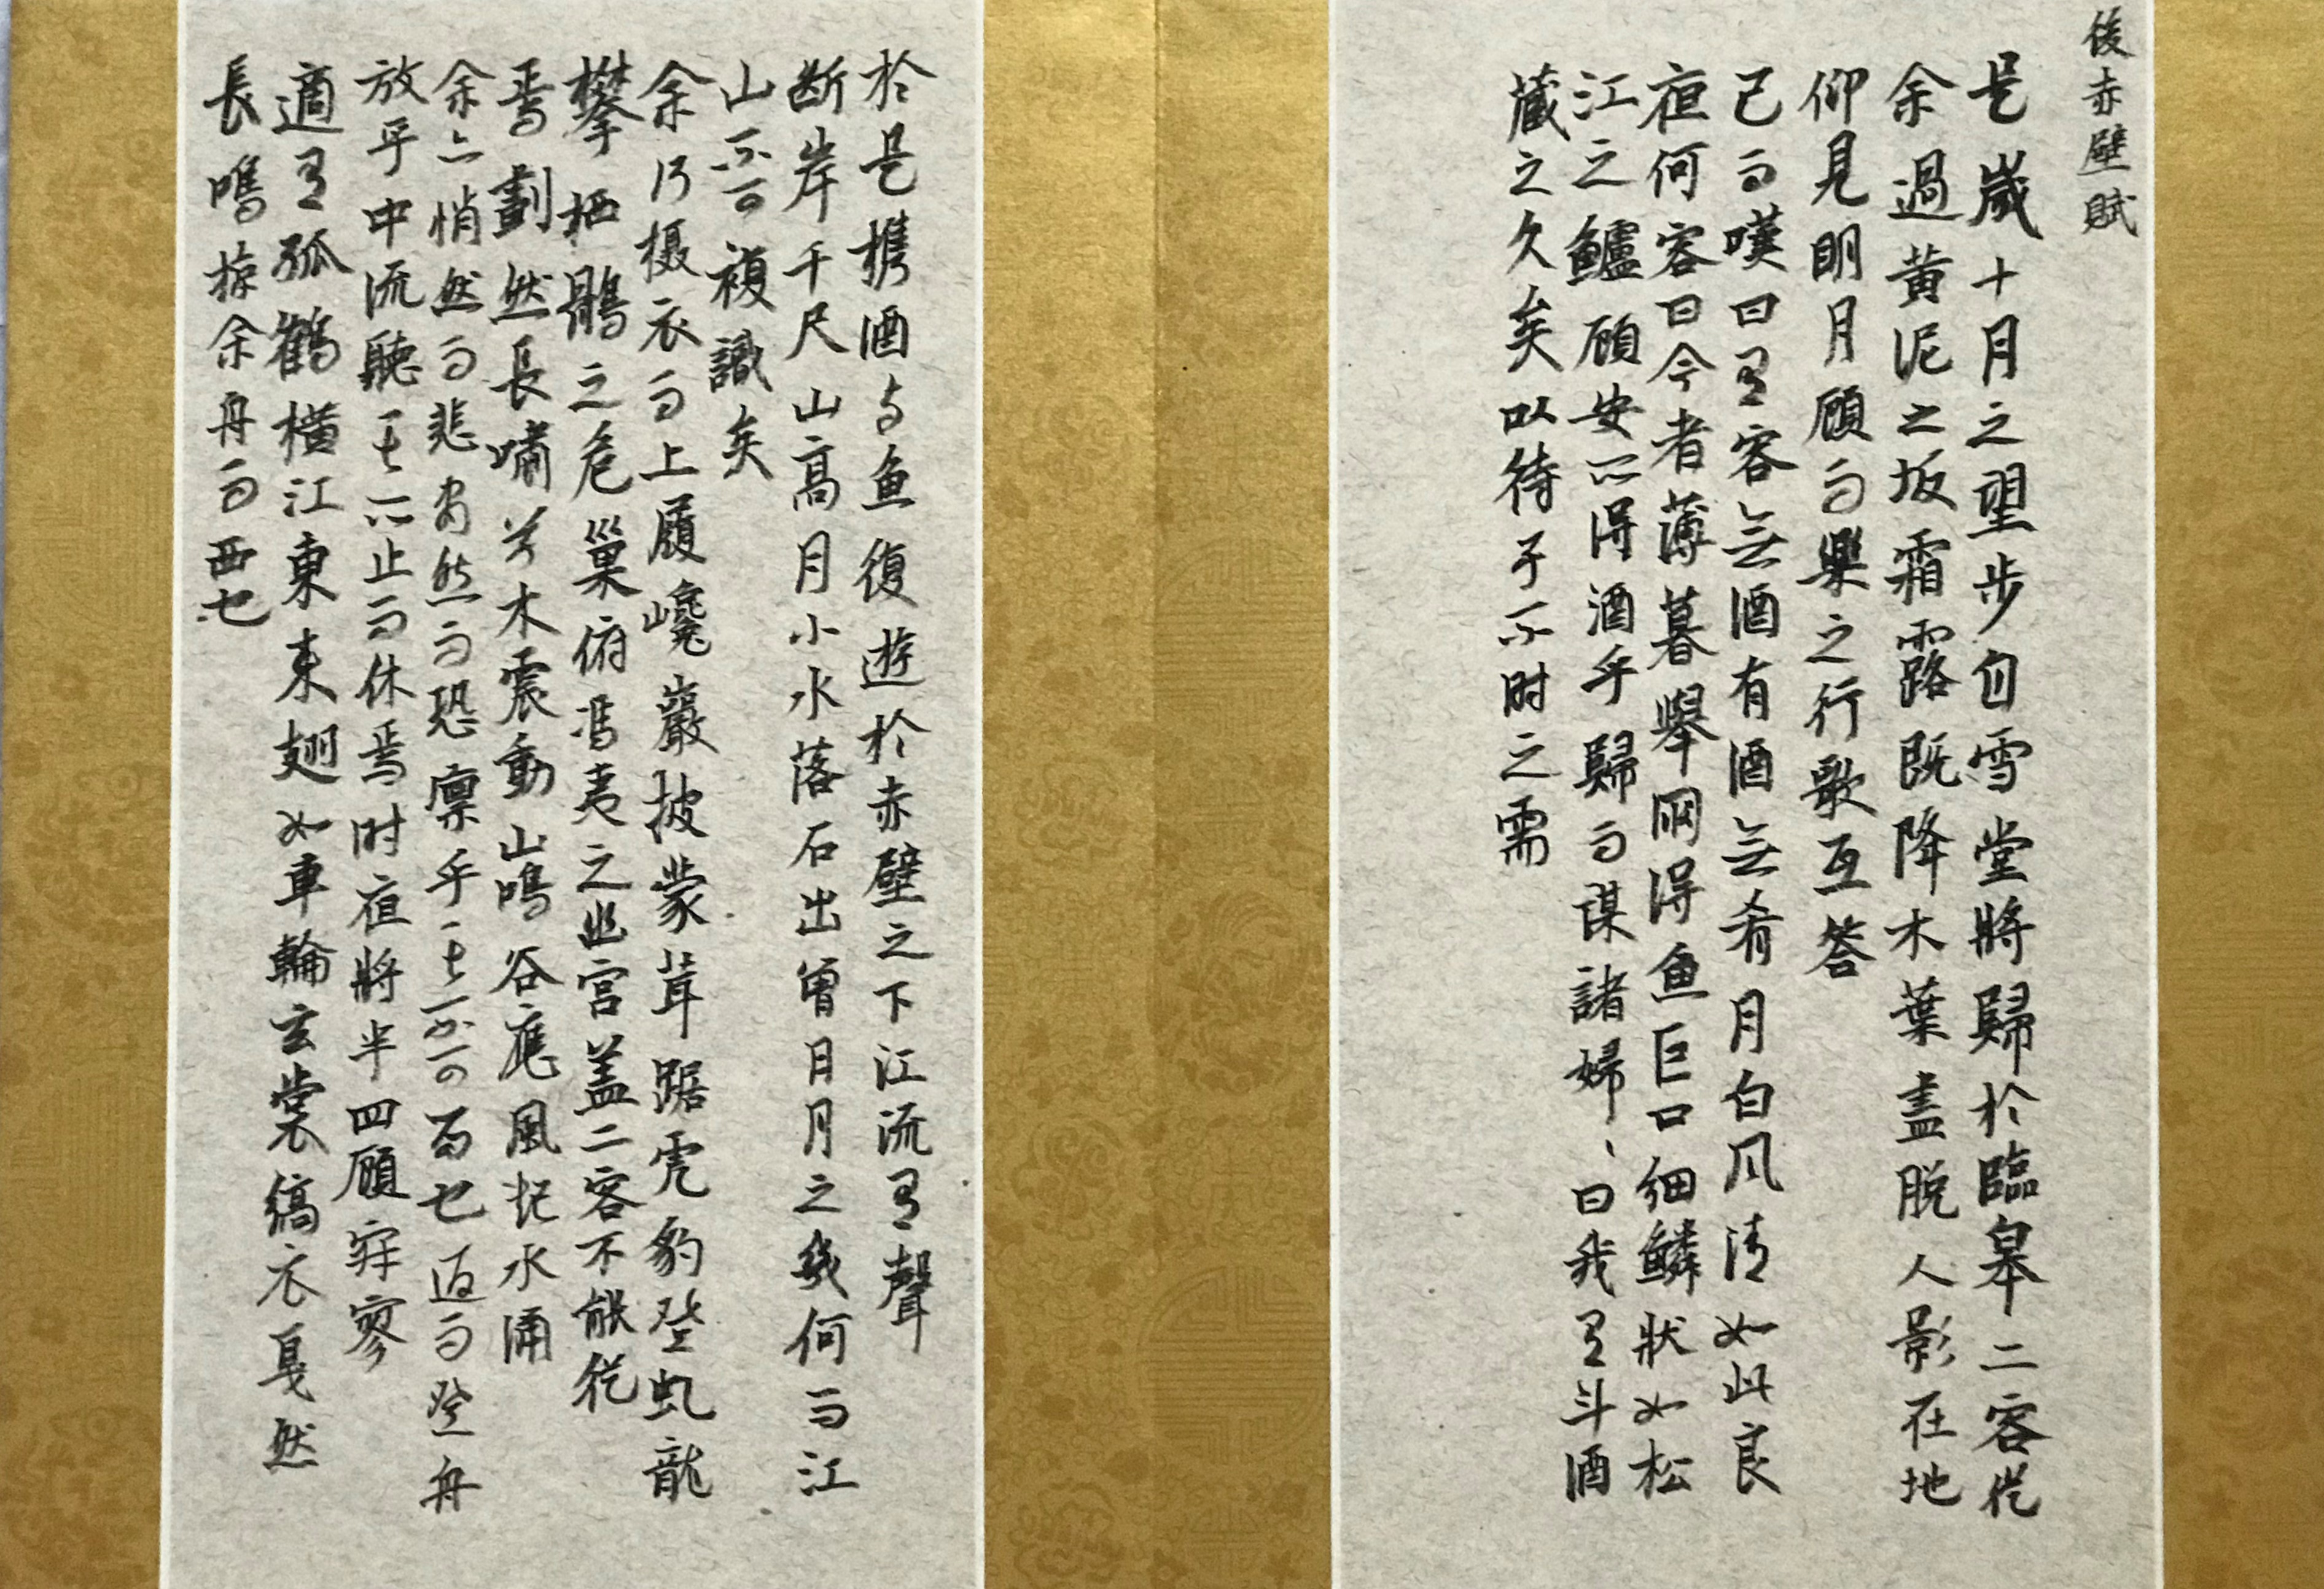 後赤壁賦
是歲十月之望步自雪堂將歸於臨皋二客從
余過黃泥之坂霜露既降木葉盡脫人影在地
仰見明月顧而樂之行歌互答
已而嘆曰有客無酒有酒無肴月白风清如此良
夜何客曰今者薄暮舉网得魚巨口细鱗狀如松
江之鱸顧安所得酒乎歸而謀諸婦、曰我有斗酒
藏之久矣以待子不时之需
於是携酒与魚復遊於赤壁之下江流有聲
断岸千尺山高月小水落石出曾日月之幾何而江
山不可複識矣
余乃摄衣而上履巉巖披蒙茸踞虎豹登虬龍
攀栖鶻之危巢俯馮夷之幽宫盖二客不能從
焉劃然長嘯草木震動山鳴谷應風起水涌
余亦悄然而悲肃然而恐凛乎其不可留也返而登舟
放乎中流聽其所止而休焉时夜將半四顧寂寥
適有孤鶴橫江東来翅如車輪玄裳縞衣戛然
長鳴掠余舟而西也